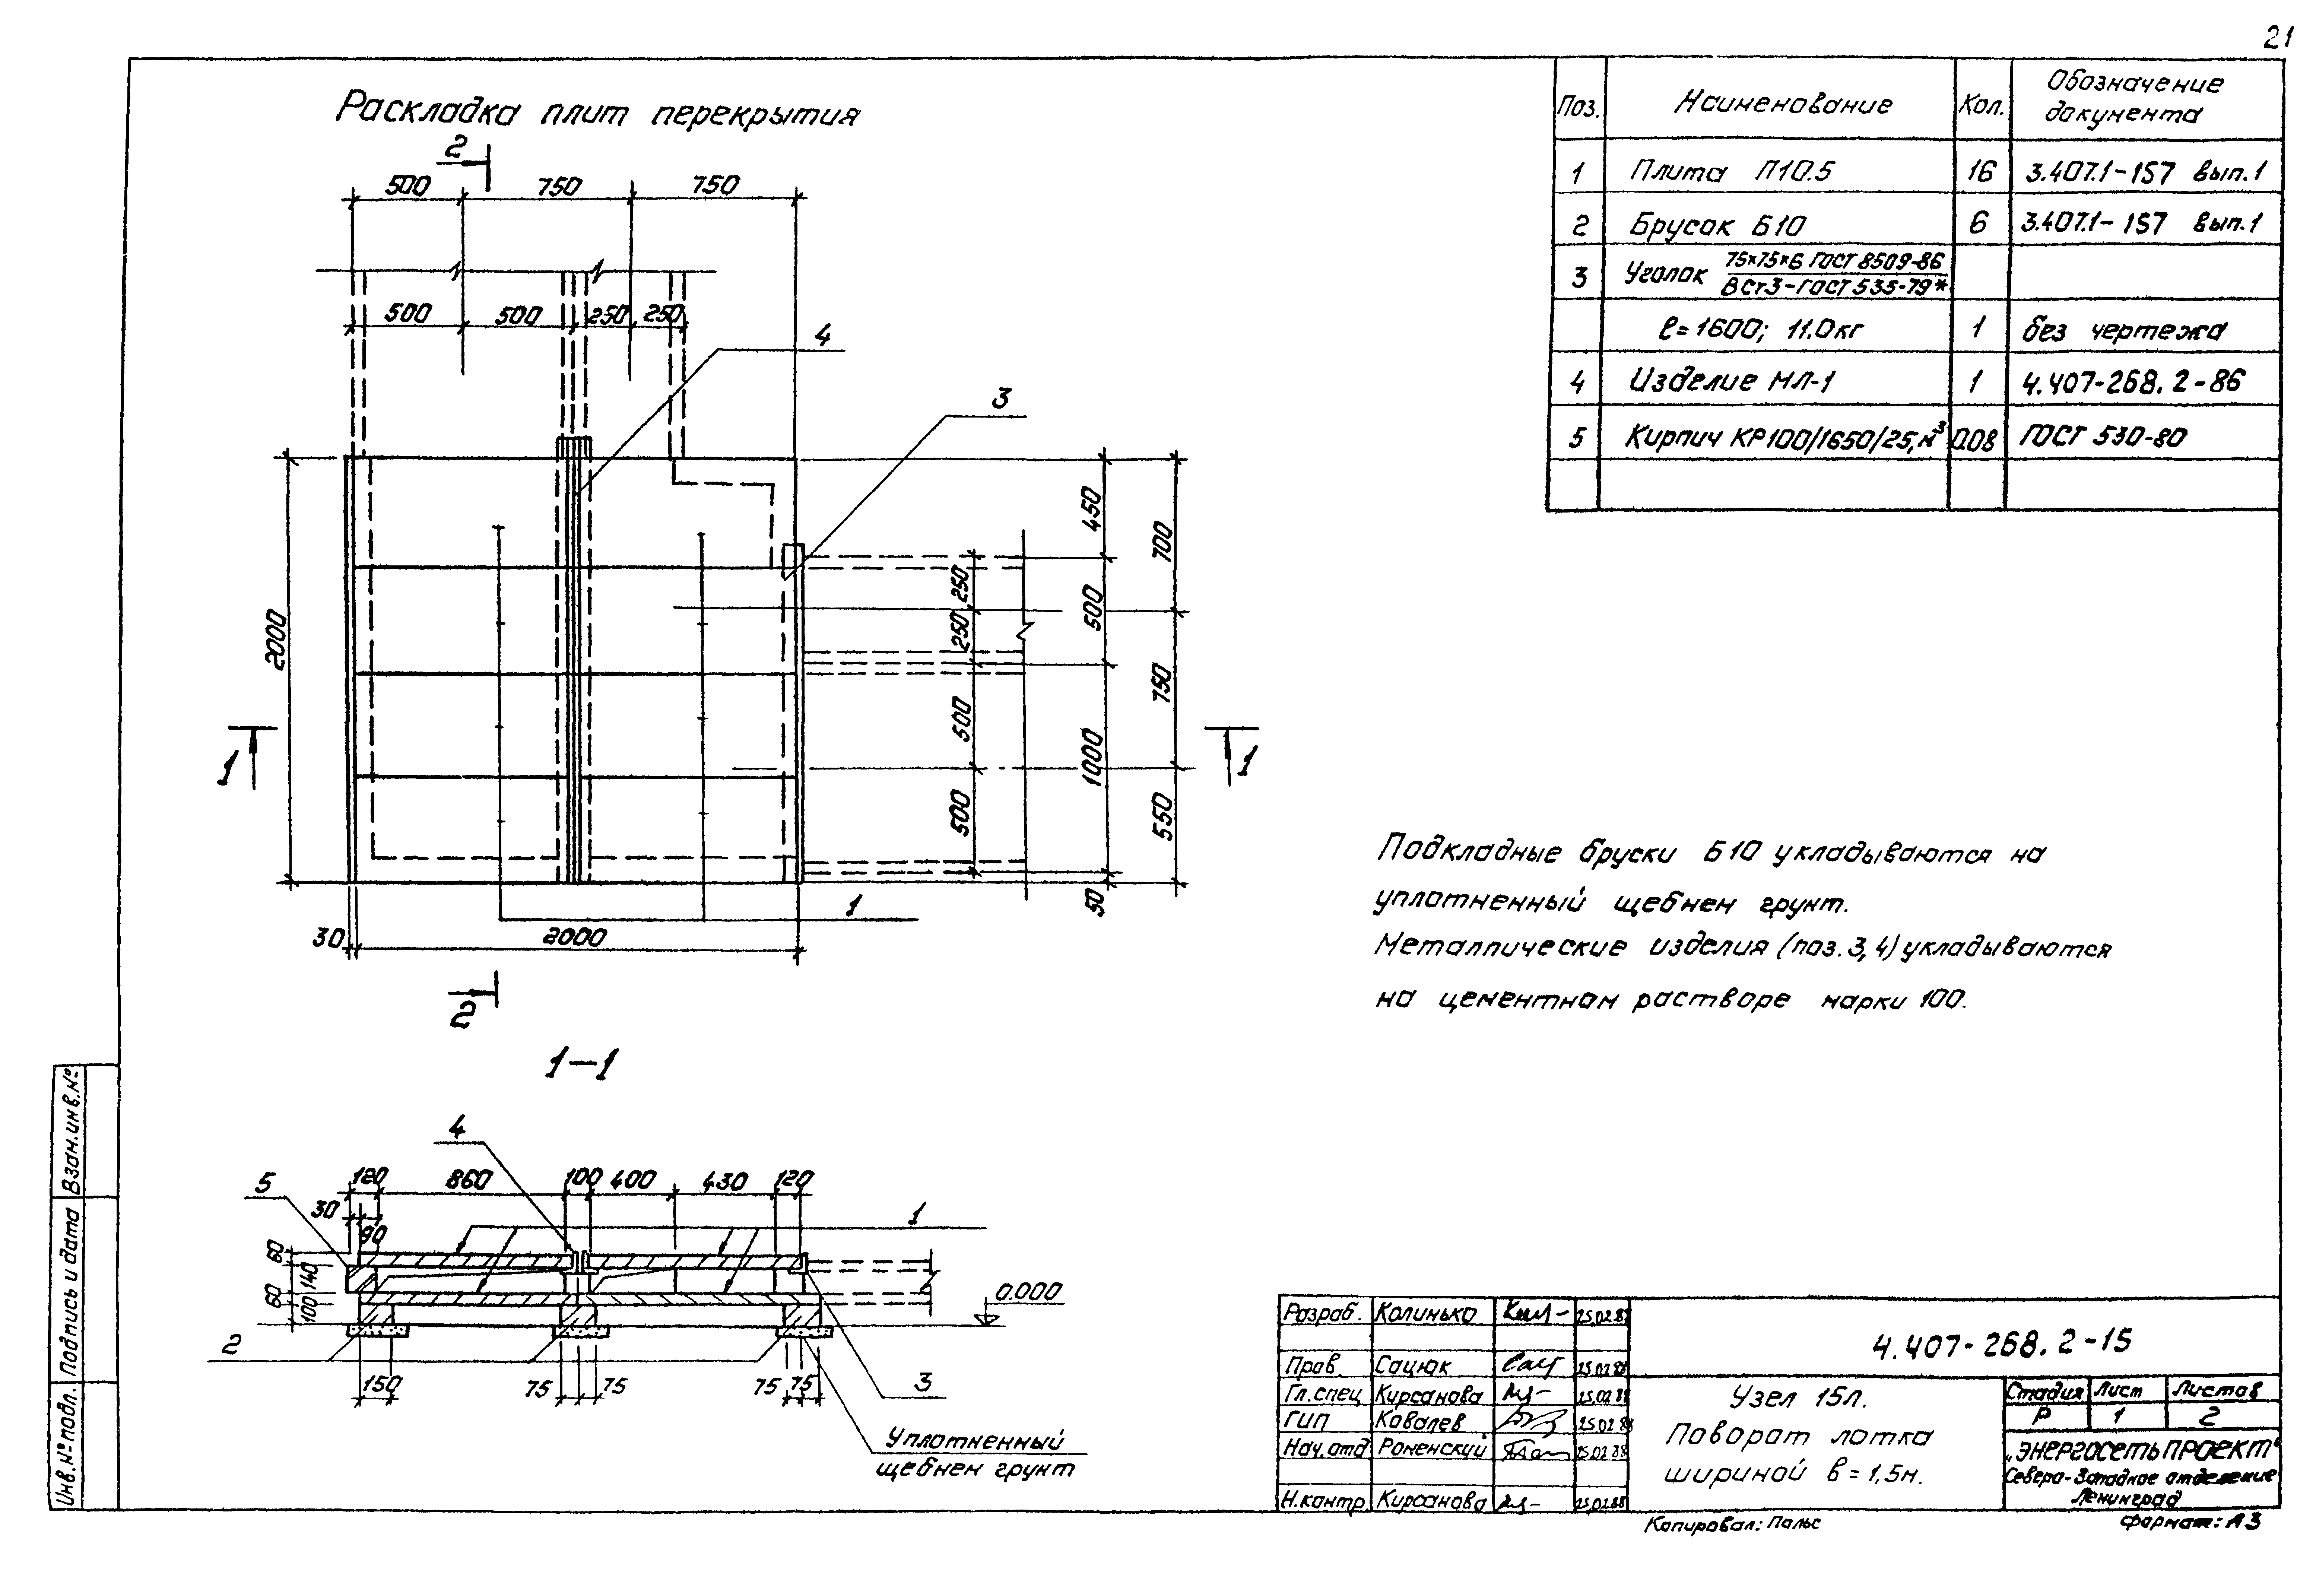 21
Раскладка плит перекрытия
2
500 750 750
500 500 250 250
4
3
2000
450
700
250
500
250
750
500
1000
500
550
50
1
1
1
30 2000
2
1-1
4
5 120 860 100 400 430 120
30 90
1
60
140
60
100
0.000
2
150 75 75 75 75 3
Уплотненный
щебнем грунт
Поз. Наименование Кол. Обозначение документа
1 Плита П10.5 16 3.407.1-157 вып.1
2 Брусок Б10 6 3.407.1-157 вып.1
3 Уголок 75×75×6 ГОСТ 8509-86
ВСт3-ГОСТ 535-79*
ℓ=1600; 11.0кг 1 без чертежа
4 Изделие МЛ-1 1 4.407-268.2-86
5 Кирпич КР100/1650/25, м³ 0.08 ГОСТ 530-80
Подкладные бруски Б10 укладываются на
уплотненный щебнем грунт.
Металлические изделия (поз.3,4) укладываются
на цементном растворе марки 100.
Разраб. Калинько 25.02.88
Пров. Сацюк 25.02.88
Гл.спец Кирсанова 25.02.88
ГИП Ковалев 25.02.88
Нач.отд Роменский 25.02.88
Н.контр. Кирсанова 25.02.88
4.407-268.2-15
Узел 15л.
Поворот лотка
шириной в=1,5м.
Стадия Лист Листов
Р 1 2
„ЭНЕРГОСЕТЬПРОЕКТ“
Северо-Западное отделение
Ленинград
Копировал: Пальс
формат: А3
Инв.№подл. Подпись и дата Взам.инв.№